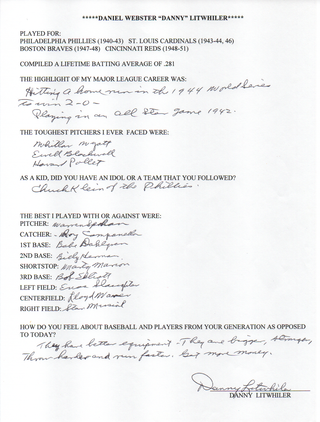 *****DANIEL WEBSTER "DANNY" LITWHILER*****
PLAYED FOR:
PHILADELPHIA PHILLIES (1940-43) ST. LOUIS CARDINALS (1943-44, 46)
BOSTON BRAVES (1947-48) CINCINNATI REDS (1948-51)
COMPILED A LIFETIME BATTING AVERAGE OF .281
THE HIGHLIGHT OF MY MAJOR LEAGUE CAREER WAS:
Hitting A home run in the 1944 World Series
to win 2-0-
Playing in an all Star Game 1942.
THE TOUGHEST PITCHERS I EVER FACED WERE:
Whitlow Wyatt
Ewell Blackwell
Howard Pollet
AS A KID, DID YOU HAVE AN IDOL OR A TEAM THAT YOU FOLLOWED?
Chuck Klein of the Phillies.
THE BEST I PLAYED WITH OR AGAINST WERE:
PITCHER: Warren Spahn
CATCHER: Roy Campanella
1ST BASE: Babe Dahlgren
2ND BASE: Billy Herman
SHORTSTOP: Marty Marion
3RD BASE: Bob Elliott
LEFT FIELD: Enos Slaughter
CENTERFIELD: Lloyd Waner
RIGHT FIELD: Stan Musial
HOW DO YOU FEEL ABOUT BASEBALL AND PLAYERS FROM YOUR GENERATION AS OPPOSED
TO TODAY?
They have better equipment. They are bigger, stronger,
Throw harder and run faster. Get more money.
Danny Litwhiler
DANNY LITWHILER